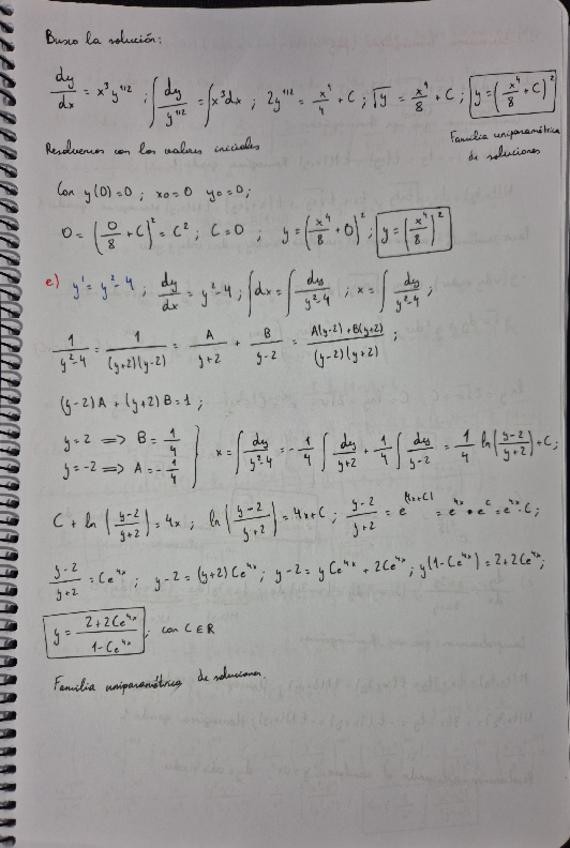 Busco la solución:
dy/dx = x³y^1/2 ; ∫ dy/y^1/2 = ∫x³dx ; 2y^1/2 = x⁴/4 + C ; √y = x⁴/8 + C ; y = (x⁴/8 + C)²
Familia uniparamétrica
de soluciones
Resolvemos con los valores iniciales
Con y(0)=0 ; x0=0 y0=0 ;
0 = (0/8 + C)² = C² ; C=0 ; y = (x⁴/8 + 0)² ; y = (x⁴/8)²
e) y' = y²-4 ; dy/dx = y²-4 ; ∫dx = ∫ dy/y²-4 ; x = ∫ dy/y²-4 ;
1/y²-4 = 1/(y+2)(y-2) = A/y+2 + B/y-2 = A(y-2)+B(y+2)/(y-2)(y+2) ;
(y-2)A + (y+2)B = 1 ;
y=2 ⟹ B = 1/4
y=-2 ⟹ A = -1/4 } x = ∫ dy/y²-4 = -1/4 ∫ dy/y+2 + 1/4 ∫ dy/y-2 = 1/4 ln(y-2/y+2) + C ;
C + ln(y-2/y+2) = 4x ; ln(y-2/y+2) = 4x+C ; y-2/y+2 = e^(4x+C) = e^4x • e^c = e^4x · C ;
y-2/y+2 = Ce^4x ; y-2 = (y+2)Ce^4x ; y-2 = yCe^4x + 2Ce^4x ; y(1-Ce^4x) = 2+2Ce^4x ;
y = 2+2Ce^4x/1-Ce^4x ; con C∈R
Familia uniparamétrica de soluciones.